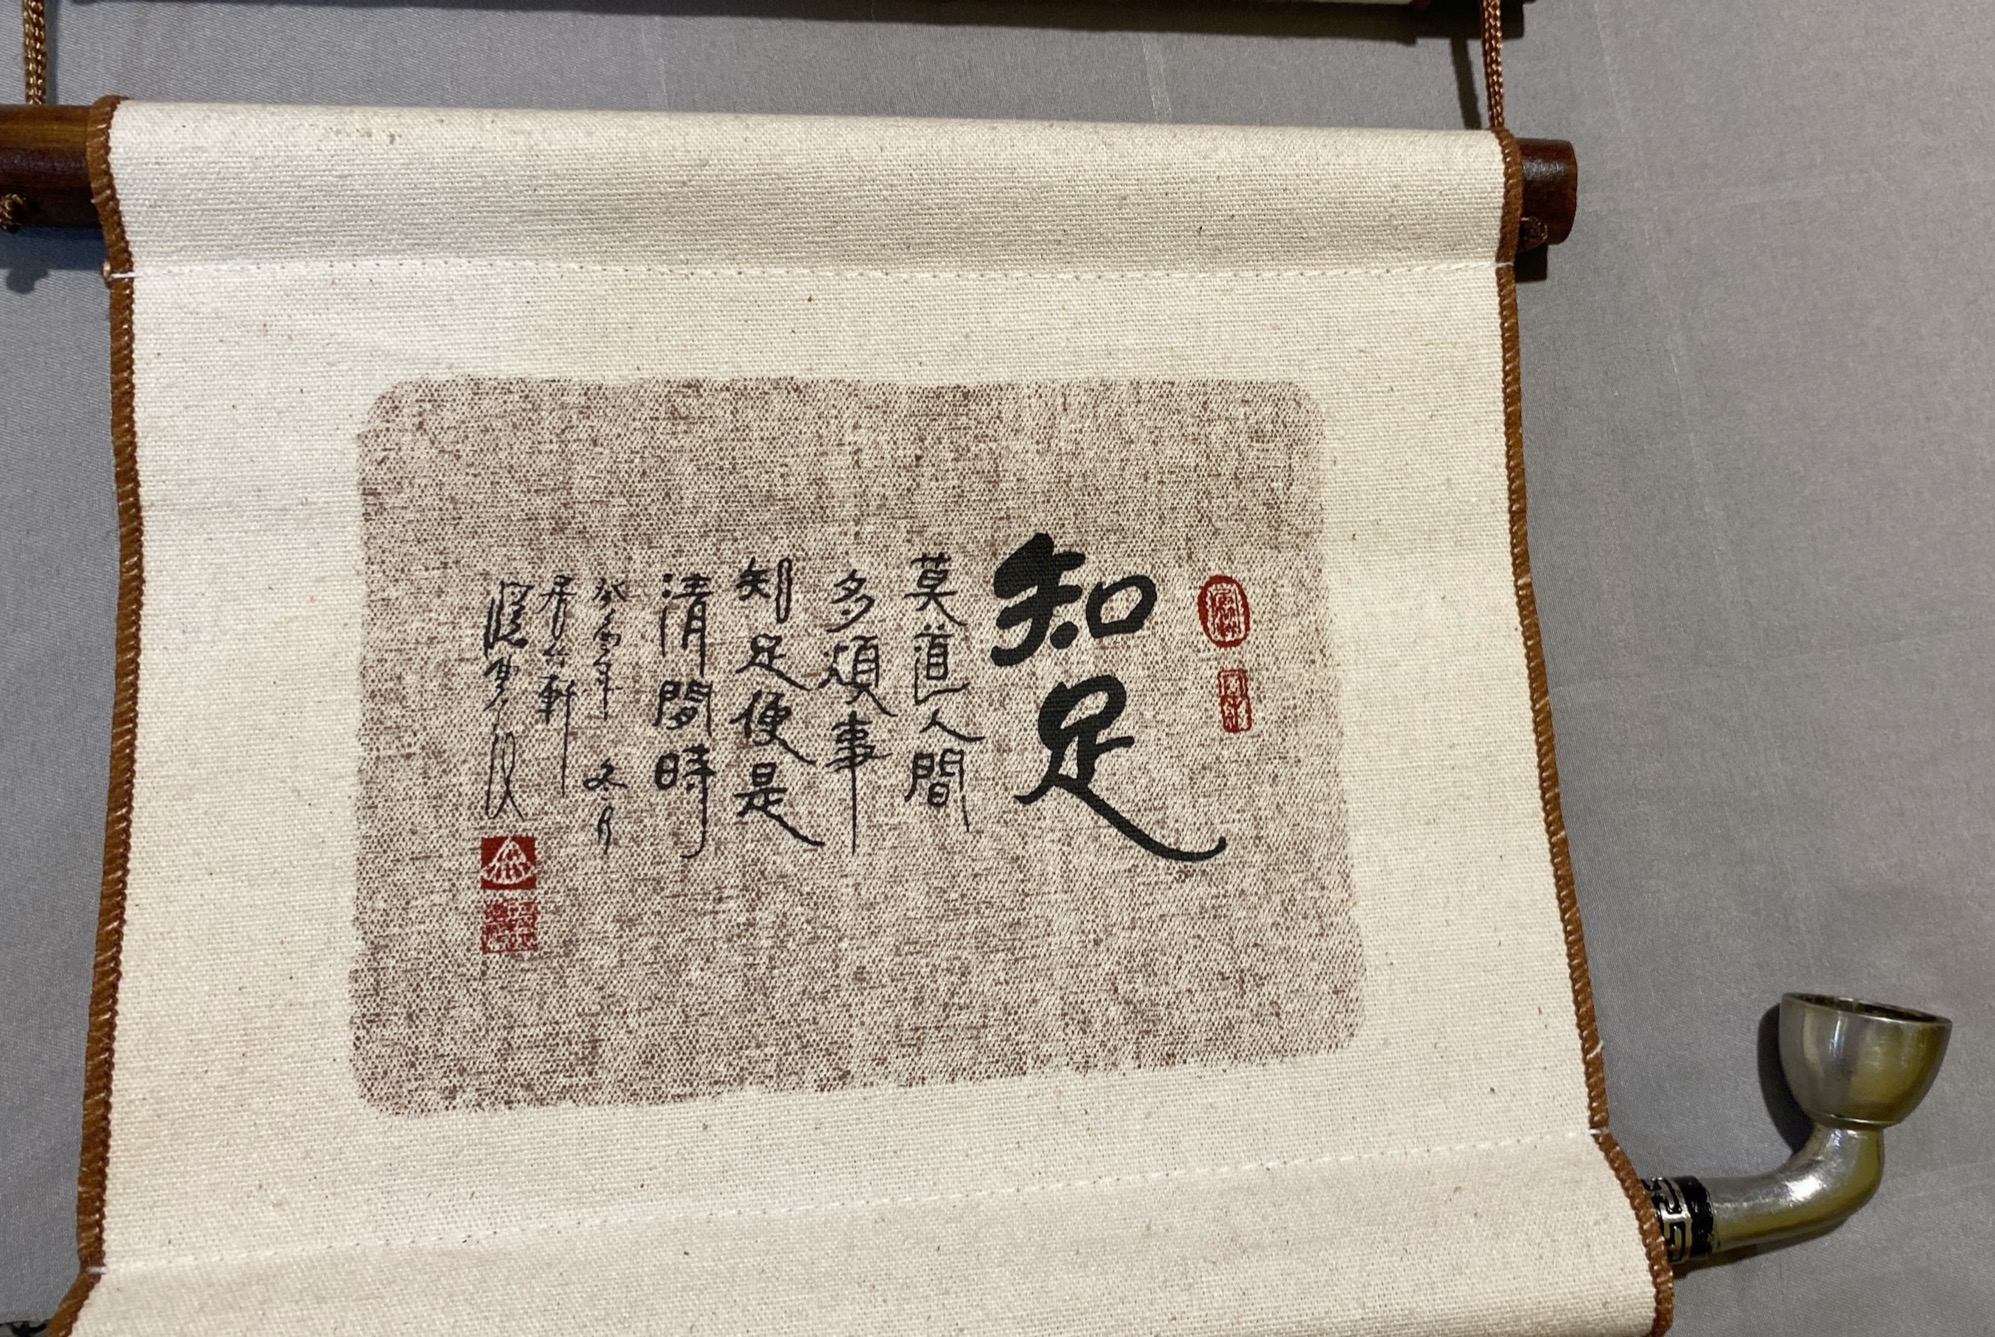 知足
莫道人間
多煩事
知足便是
清閒時
年冬月
軒